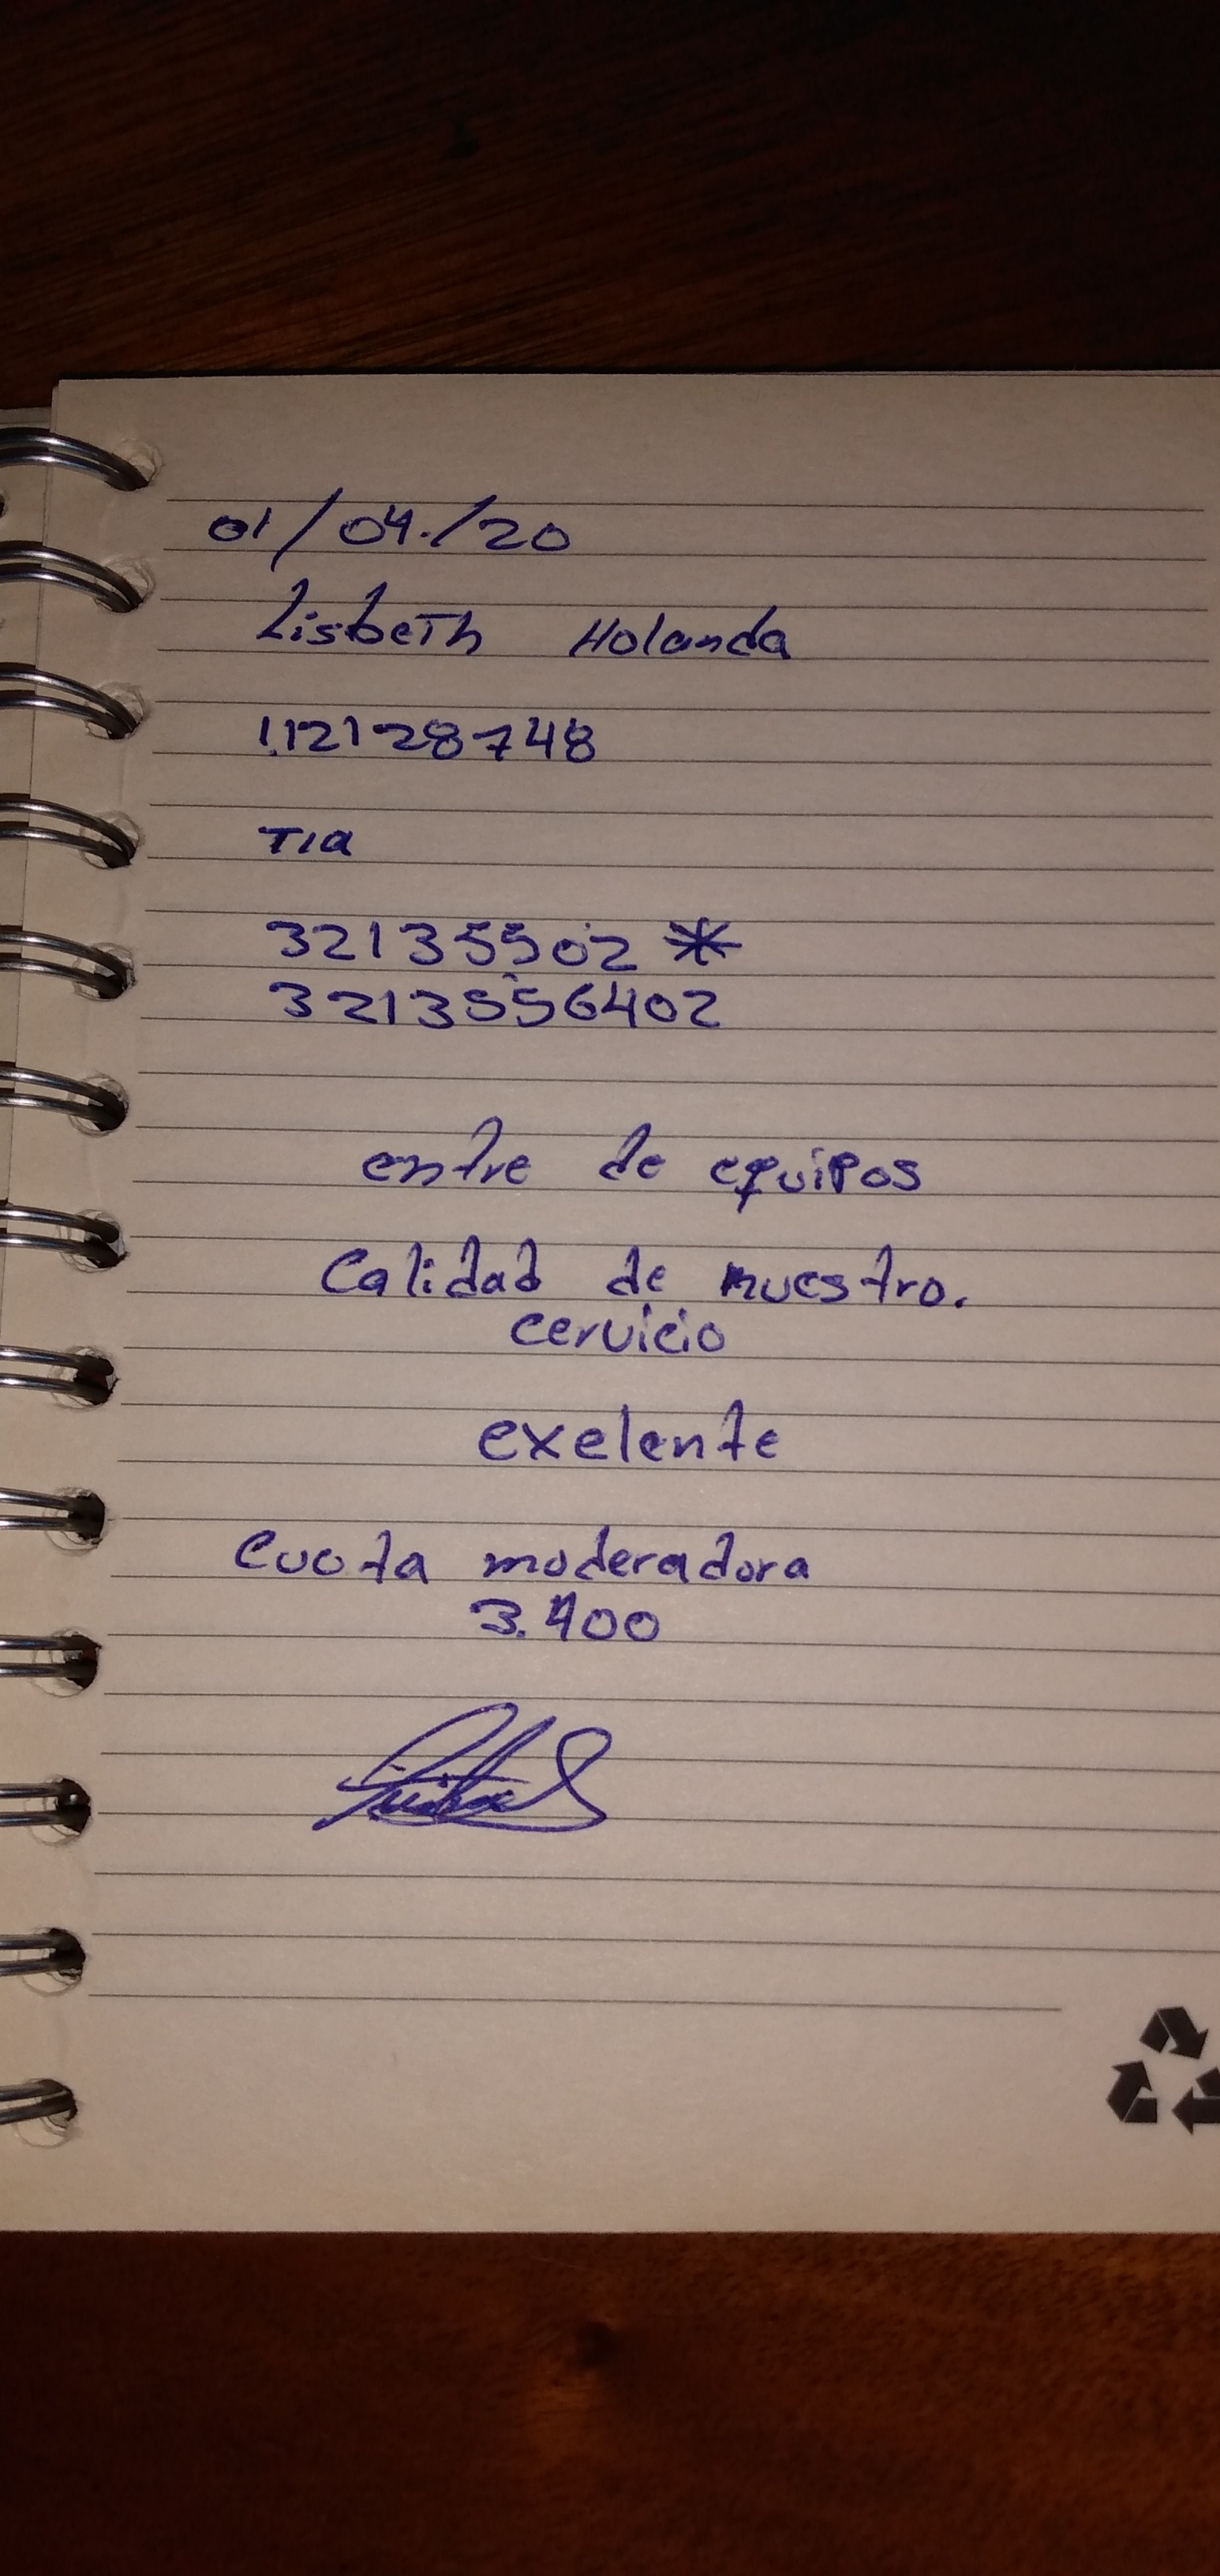 01/04./20
Lisbeth Holanda
1.12128748
Tia
32135502 *
3213556402
entre de equipos
Calidad de nuestro.
cervicio
exelente
Cuota moderadora
3.400